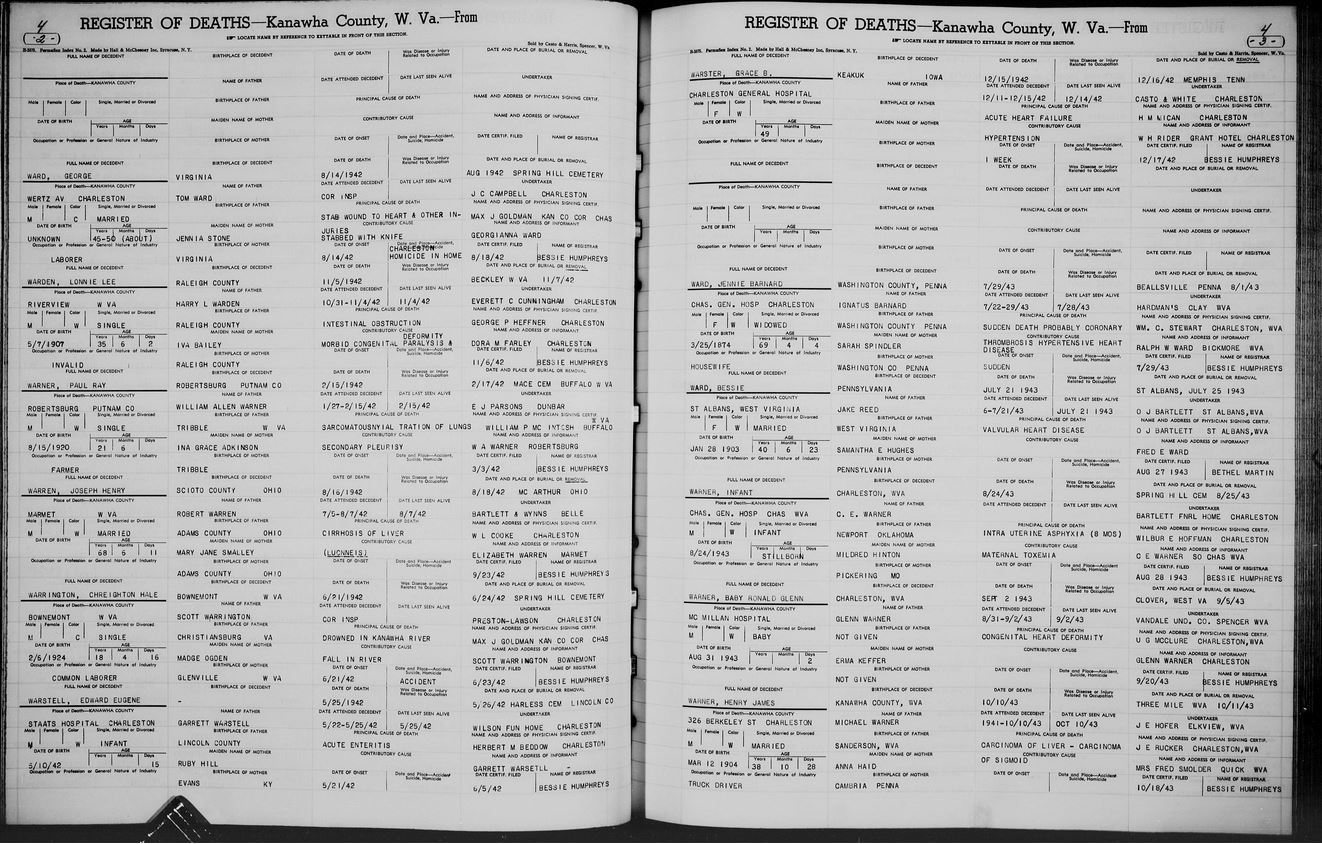 4
-2-
REGISTER OF DEATHS—Kanawha County, W. Va.—From
LOCATE NAME BY REFERENCE TO KEYTABLE IN FRONT OF THIS SECTION.
Sold by Casto & Harris, Spencer, W. Va.
FULL NAME OF DECEDENT BIRTHPLACE OF DECEDENT DATE OF DEATH Was Disease or Injury Related to Occupation DATE AND PLACE OF BURIAL OR REMOVAL
Place of Death—KANAWHA COUNTY NAME OF FATHER DATE ATTENDED DECEDENT DATE LAST SEEN ALIVE UNDERTAKER
Male Female Color Single, Married or Divorced BIRTHPLACE OF FATHER PRINCIPAL CAUSE OF DEATH NAME AND ADDRESS OF PHYSICIAN SIGNING CERTIF.
DATE OF BIRTH AGE Years Months Days MAIDEN NAME OF MOTHER CONTRIBUTORY CAUSE NAME AND ADDRESS OF INFORMANT
Occupation or Profession or General Nature of Industry BIRTHPLACE OF MOTHER DATE OF ONSET Date and Place—Accident, Suicide, Homicide DATE CERTIF. FILED NAME OF REGISTRAR
WARD, GEORGE VIRGINIA 8/14/1942 AUG 1942 SPRING HILL CEMETERY
WERTZ AV CHARLESTON TOM WARD COR INSP J C CAMPBELL CHARLESTON
M C MARRIED STAB WOUND TO HEART & OTHER IN-JURIES MAX J GOLDMAN KAN CO COR CHAS
UNKNOWN 45-50 (ABOUT) JENNIA STONE STABBED WITH KNIFE GEORGIANNA WARD
LABORER VIRGINIA 8/14/42 CHARLESTON HOMICIDE IN HOME 8/18/42 BESSIE HUMPHREYS
WARDEN, LONNIE LEE RALEIGH COUNTY 11/5/1942 BECKLEY W VA 11/7/42
RIVERVIEW W VA HARRY L WARDEN 10/31-11/4/42 11/4/42 EVERETT C CUNNINGHAM CHARLESTON
M W SINGLE RALEIGH COUNTY INTESTINAL OBSTRUCTION GEORGE P HEFFNER CHARLESTON
5/7/1907 35 6 2 IVA BAILEY MORBID CONGENITAL PARALYSIS & DEFORMITY DORA M FARLEY CHARLESTON
INVALID RALEIGH COUNTY 11/6/42 BESSIE HUMPHREYS
WARNER, PAUL RAY ROBERTSBURG PUTNAM CO 2/15/1942 2/17/42 MACE CEM BUFFALO W VA
ROBERTSBURG PUTNAM CO WILLIAM ALLEN WARNER 1/27-2/15/42 2/15/42 E J PARSONS DUNBAR
M W SINGLE TRIBBLE W VA SARCOMATOUSNYIAL TRATION OF LUNGS WILLIAM P MC INTOSH BUFFALO W VA
8/15/1920 21 6 INA GRACE ADKINSON SECONDARY PLEURISY W A WARNER ROBERTSBURG
FARMER TRIBBLE 3/3/42 BESSIE HUMPHREYS
WARREN, JOSEPH HENRY SCIOTO COUNTY OHIO 8/16/1942 8/18/42 MC ARTHUR OHIO
MARMET W VA ROBERT WARREN 7/5-8/7/42 8/7/42 BARTLETT & WYNNS BELLE
M W MARRIED ADAMS COUNTY OHIO CIRRHOSIS OF LIVER W L COOKE CHARLESTON
68 6 11 MARY JANE SMALLEY (LUCNNEIS) ELIZABETH WARREN MARMET
ADAMS COUNTY OHIO 9/23/42 BESSIE HUMPHREYS
WARRINGTON, CHREIGHTON HALE BOWNEMONT W VA 6/21/1942 6/24/42 SPRING HILL CEMETERY
BOWNEMONT W VA SCOTT WARRINGTON COR INSP PRESTON-LAWSON CHARLESTON
M C SINGLE CHRISTIANSBURG VA DROWNED IN KANAWHA RIVER MAX J GOLDMAN KAN CO COR CHAS
2/6/1924 18 4 16 MADGE OGDEN FALL IN RIVER SCOTT WARRINGTON BOWNEMONT
COMMON LABORER GLENVILLE W VA 6/21/42 ACCIDENT 6/23/42 BESSIE HUMPHREYS
WARSTELL, EDWARD EUGENE - 5/25/1942 5/26/42 HARLESS CEM LINCOLN CO
STAATS HOSPITAL CHARLESTON GARRETT WARSTELL 5/22-5/25/42 5/25/42 WILSON FUN HOME CHARLESTON
M W INFANT LINCOLN COUNTY ACUTE ENTERITIS HERBERT M BEDDOW CHARLESTON
5/10/42 15 RUBY HILL GARRETT WARSETLL -
EVANS KY 5/21/42 6/5/42 BESSIE HUMPHREYS
4
-3-
REGISTER OF DEATHS—Kanawha County, W. Va.—From
LOCATE NAME BY REFERENCE TO KEYTABLE IN FRONT OF THIS SECTION.
Sold by Casto & Harris, Spencer, W. Va.
FULL NAME OF DECEDENT BIRTHPLACE OF DECEDENT DATE OF DEATH Was Disease or Injury Related to Occupation DATE AND PLACE OF BURIAL OR REMOVAL
WARSTER, GRACE B. KEAKUK IOWA 12/15/1942 12/16/42 MEMPHIS TENN
CHARLESTON GENERAL HOSPITAL 12/11-12/15/42 12/14/42 CASTO & WHITE CHARLESTON
F W ACUTE HEART FAILURE H M MICAN CHARLESTON
49 HYPERTENSION W H RIDER GRANT HOTEL CHARLESTON
1 WEEK 12/17/42 BESSIE HUMPHREYS
WARD, JENNIE BARNARD WASHINGTON COUNTY, PENNA 7/29/43 BEALLSVILLE PENNA 8/1/43
CHAS. GEN. HOSP CHARLESTON IGNATUS BARNARD 7/22-29/43 7/28/43 HARDMAN'S CLAY WVA
F W WIDOWED WASHINGTON COUNTY PENNA SUDDEN DEATH PROBABLY CORONARY WM. C. STEWART CHARLESTON, WVA
3/25/1874 69 4 4 SARAH SPINDLER THROMBOSIS HYPERTENSIVE HEART DISEASE RALPH W WARD BICKMORE WVA
HOUSEWIFE WASHINGTON CO PENNA SUDDEN 7/29/43 BESSIE HUMPHREYS
WARD, BESSIE PENNSYLVANIA JULY 21 1943 ST ALBANS, JULY 25 1943
ST ALBANS, WEST VIRGINIA JAKE REED 6-7/21/43 JULY 21 1943 O J BARTLETT ST ALBANS,WVA
F W MARRIED WEST VIRGINIA VALVULAR HEART DISEASE O J BARTLETT ST ALBANS,WVA
JAN 28 1903 40 6 23 SAMANTHA E HUGHES FRED E WARD
PENNSYLVANIA AUG 27 1943 BETHEL MARTIN
WARNER, INFANT CHARLESTON, WVA 8/24/43 SPRING HILL CEM 8/25/43
CHAS. GEN. HOSP CHAS WVA C. E. WARNER BARTLETT FNRL HOME CHARLESTON
M W INFANT NEWPORT OKLAHOMA INTRA UTERINE ASPHYXIA (8 MOS) WILBUR E HOFFMAN CHARLESTON
8/24/1943 STILLBORN MILDRED HINTON MATERNAL TOXEMIA C E WARNER SO CHAS WVA
PICKERING MO AUG 28 1943 BESSIE HUMPHREYS
WARNER, BABY RONALD GLENN CHARLESTON, WVA SEPT 2 1943 CLOVER, WEST VA 9/5/43
MC MILLAN HOSPITAL GLENN WARNER 8/31-9/2/43 9/2/43 VANDALE UND. CO. SPENCER WVA
M W BABY NOT GIVEN CONGENITAL HEART DEFORMITY U G MCCLURE CHARLESTON,WVA
AUG 31 1943 2 ERMA KEFFER GLENN WARNER CHARLESTON
NOT GIVEN 9/20/43 BESSIE HUMPHREYS
WARNER, HENRY JAMES KANAWHA COUNTY, WVA 10/10/43 THREE MILE WVA 10/11/43
326 BERKELEY ST CHARLESTON MICHAEL WARNER 1941-10/10/43 OCT 10/43 J E HOFER ELKVIEW, WVA
M W MARRIED SANDERSON, WVA CARCINOMA OF LIVER - CARCINOMA OF SIGMOID J E RUCKER CHARLESTON,WVA
MAR 12 1904 38 10 28 ANNA HAID MRS FRED SMOLDER QUICK WVA
TRUCK DRIVER CAMBRIA PENNA 10/18/43 BESSIE HUMPHREYS